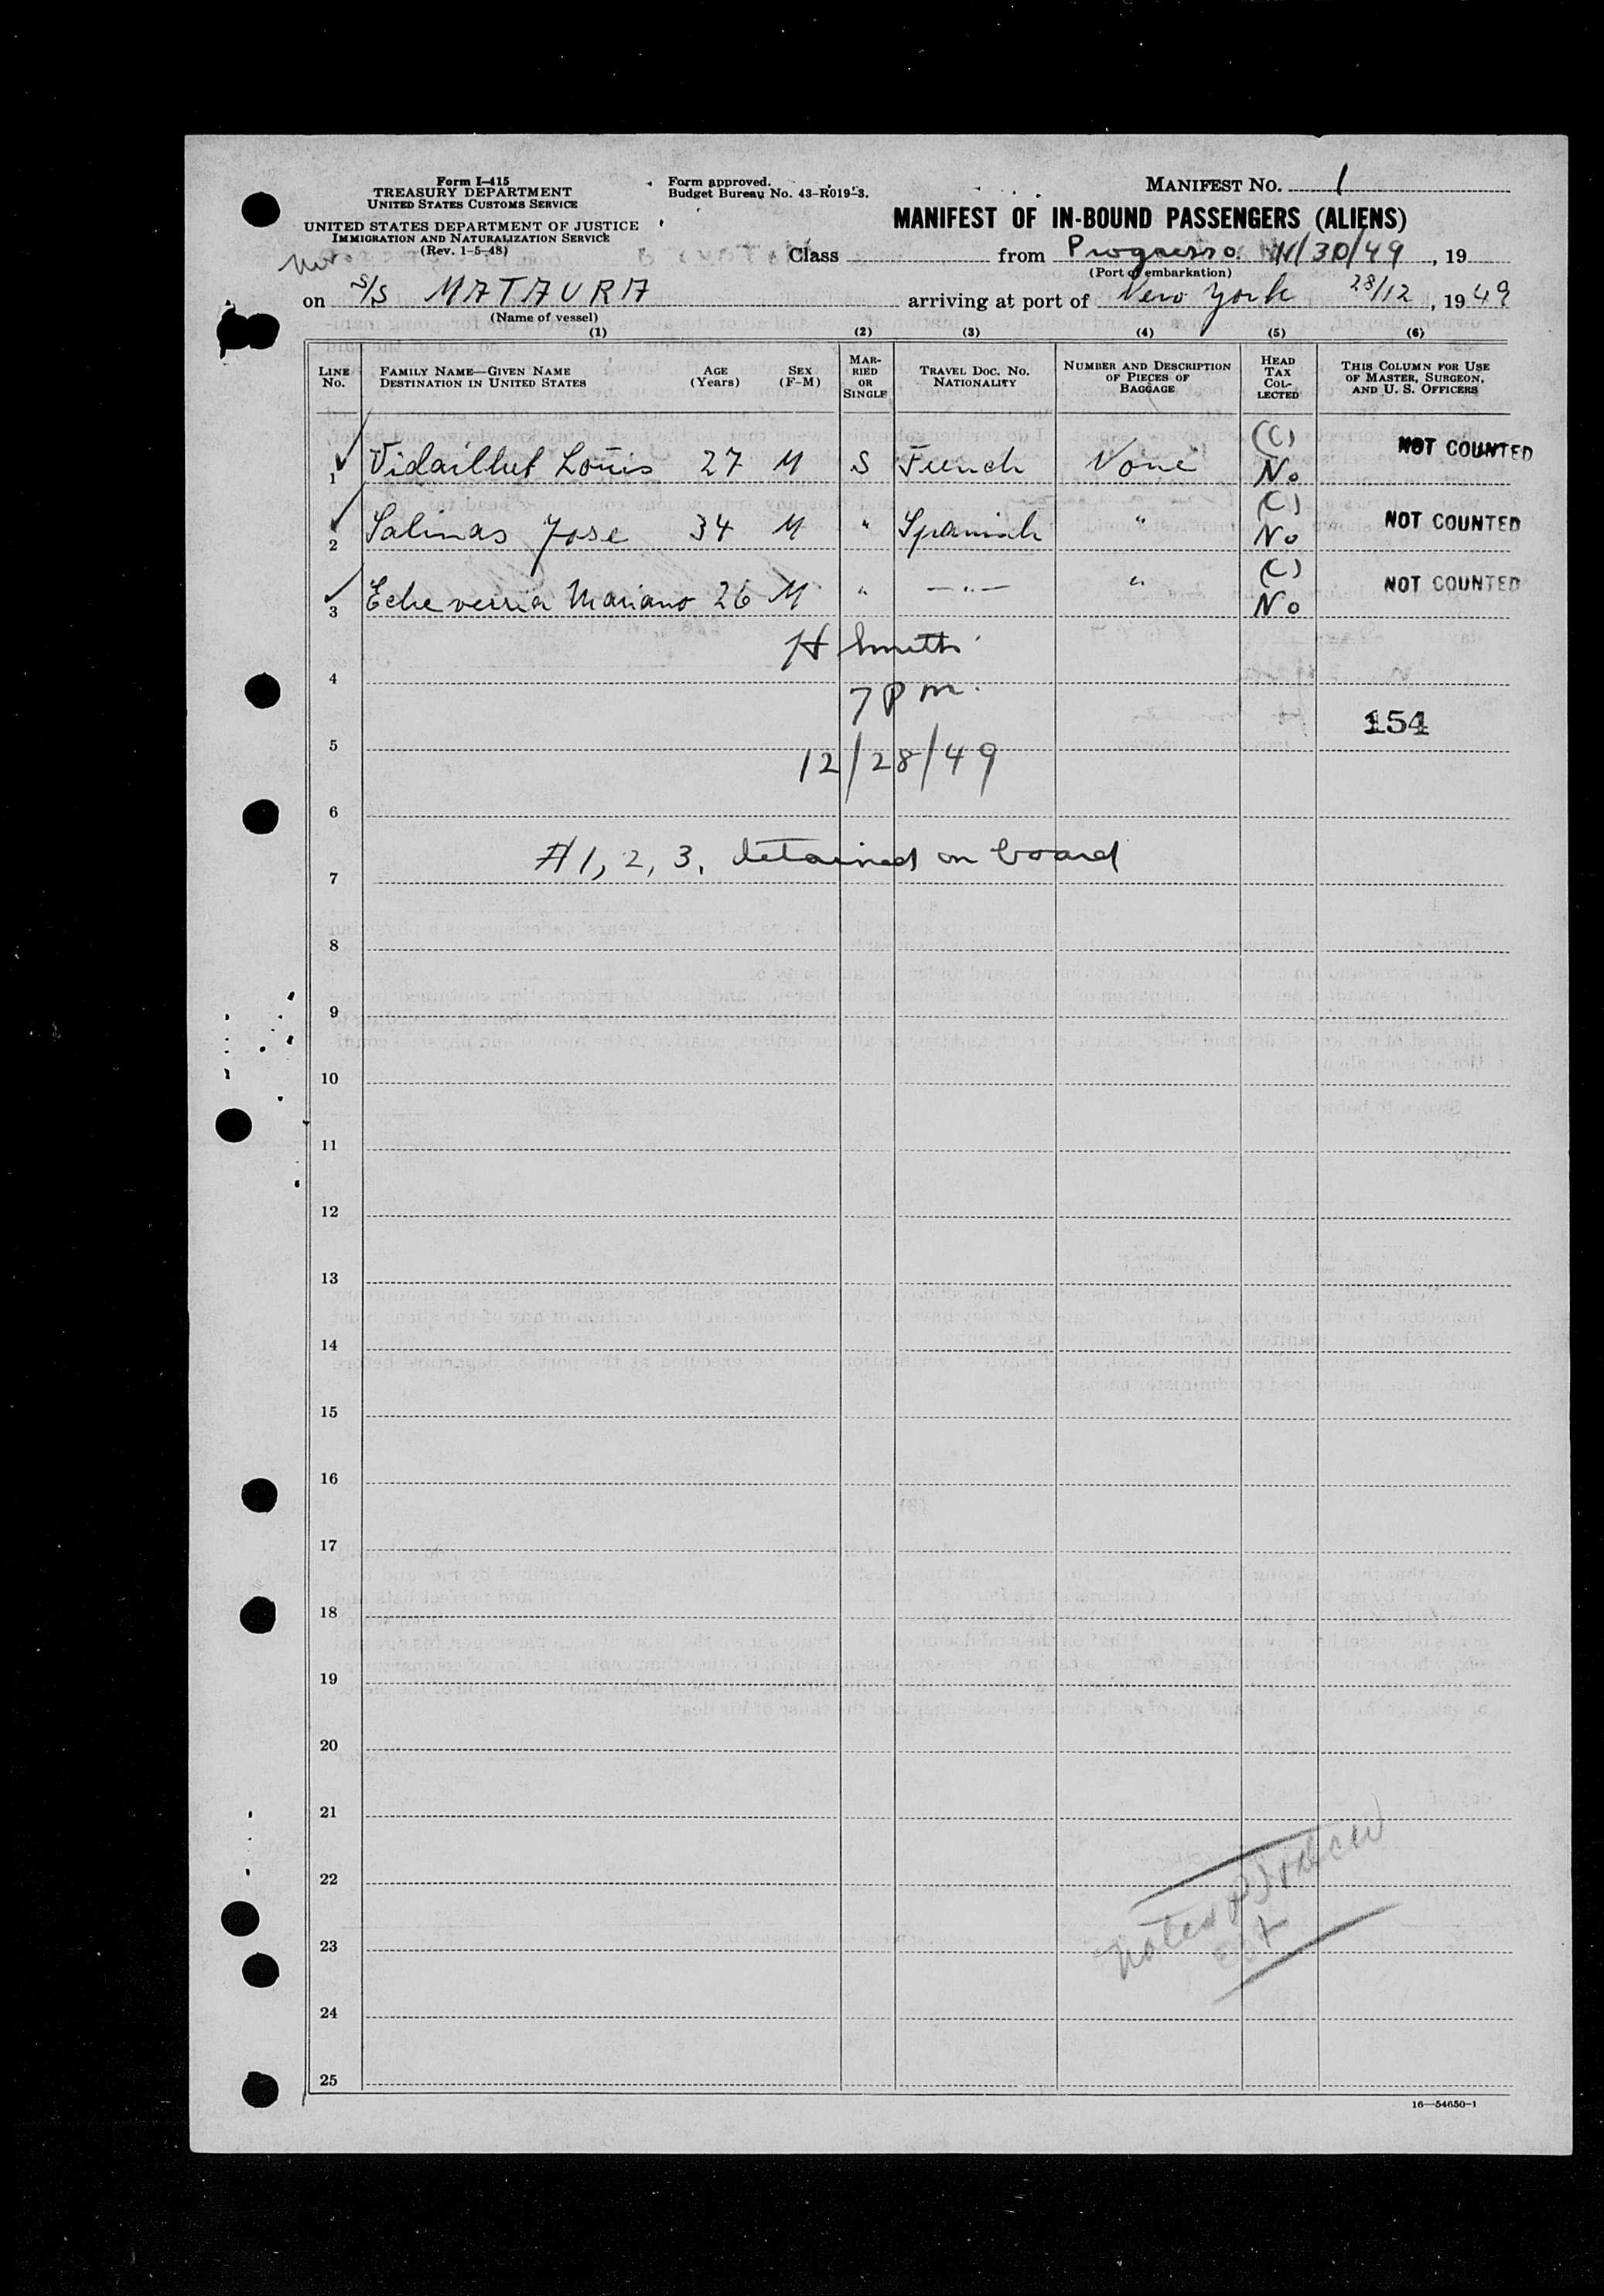 Form I-415
TREASURY DEPARTMENT
UNITED STATES CUSTOMS SERVICE
UNITED STATES DEPARTMENT OF JUSTICE
IMMIGRATION AND NATURALIZATION SERVICE
(Rev. 1-5-48)
Form approved.
Budget Bureau No. 43-R019-3.
MANIFEST NO. 1
MANIFEST OF IN-BOUND PASSENGERS (ALIENS)
Class from Progresso 11/30/49, 19
(Port of embarkation)
on S/S MATAURA arriving at port of New York 28/12, 1949
(Name of vessel)
(1) (2) (3) (4) (5) (6)
LINE No. FAMILY NAME—GIVEN NAME DESTINATION IN UNITED STATES AGE (Years) SEX (F-M) MARRIED OR SINGLE TRAVEL DOC. NO. NATIONALITY NUMBER AND DESCRIPTION OF PIECES OF BAGGAGE HEAD TAX COLLECTED THIS COLUMN FOR USE OF MASTER, SURGEON, AND U. S. OFFICERS
1 Vidaillet Louis 27 M S French None (C) No NOT COUNTED
2 Salinas Jose 34 M " Spanish " (C) No NOT COUNTED
3 Echeverria Mariano 26 M " —"— " (C) No NOT COUNTED
H Smith
4
7 P m.
154
5
12/28/49
6
# 1, 2, 3, detained on board
7
8
9
10
11
12
13
14
15
16
17
18
19
20
21
22
23
24
25
16—54650-1